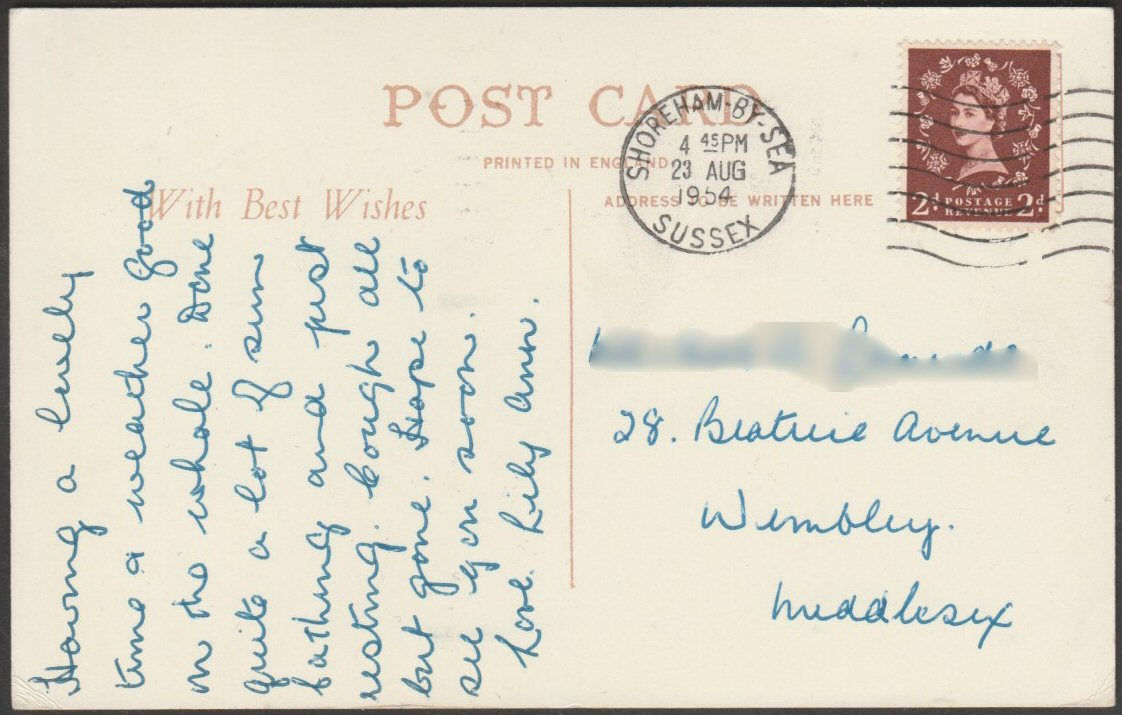 POST CARD
PRINTED IN ENGLAND
ADDRESS TO BE WRITTEN HERE
With Best Wishes
SHOREHAM-BY-SEA
4 45 PM
23 AUG
1954
SUSSEX
2d. POSTAGE 2d.
REVENUE
Having a lovely
time & weather good
on the whole. Done
quite a lot of sun
bathing and just
resting. Cough all
but gone. Hope to
see you soon.
Love. Lily Ann.
28. Beatrice Avenue
Wembley.
Middlesex